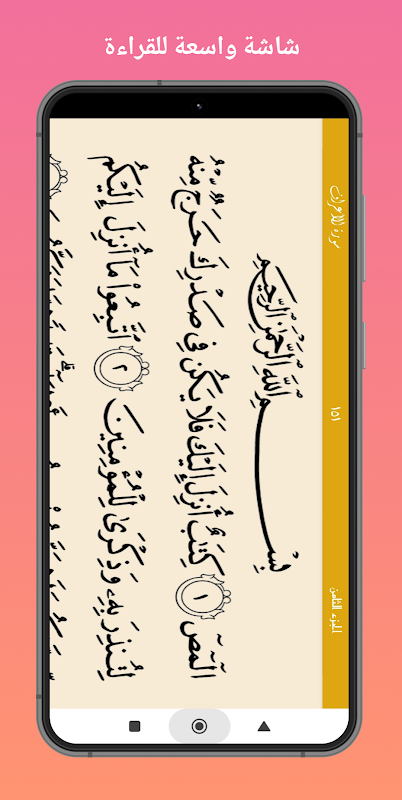 شاشة واسعة للقراءة
سورة الأعراف
١٥١
الجزء الثامن
بِسْمِ اللَّهِ الرَّحْمَٰنِ الرَّحِيمِ
الٓمٓصٓ ١ كِتَٰبٌ أُنزِلَ إِلَيْكَ فَلَا يَكُن فِى صَدْرِكَ حَرَجٌ مِّنْهُ
لِتُنذِرَ بِهِۦ وَذِكْرَىٰ لِلْمُؤْمِنِينَ ٢ ٱتَّبِعُوا۟ مَآ أُنزِلَ إِلَيْكُم